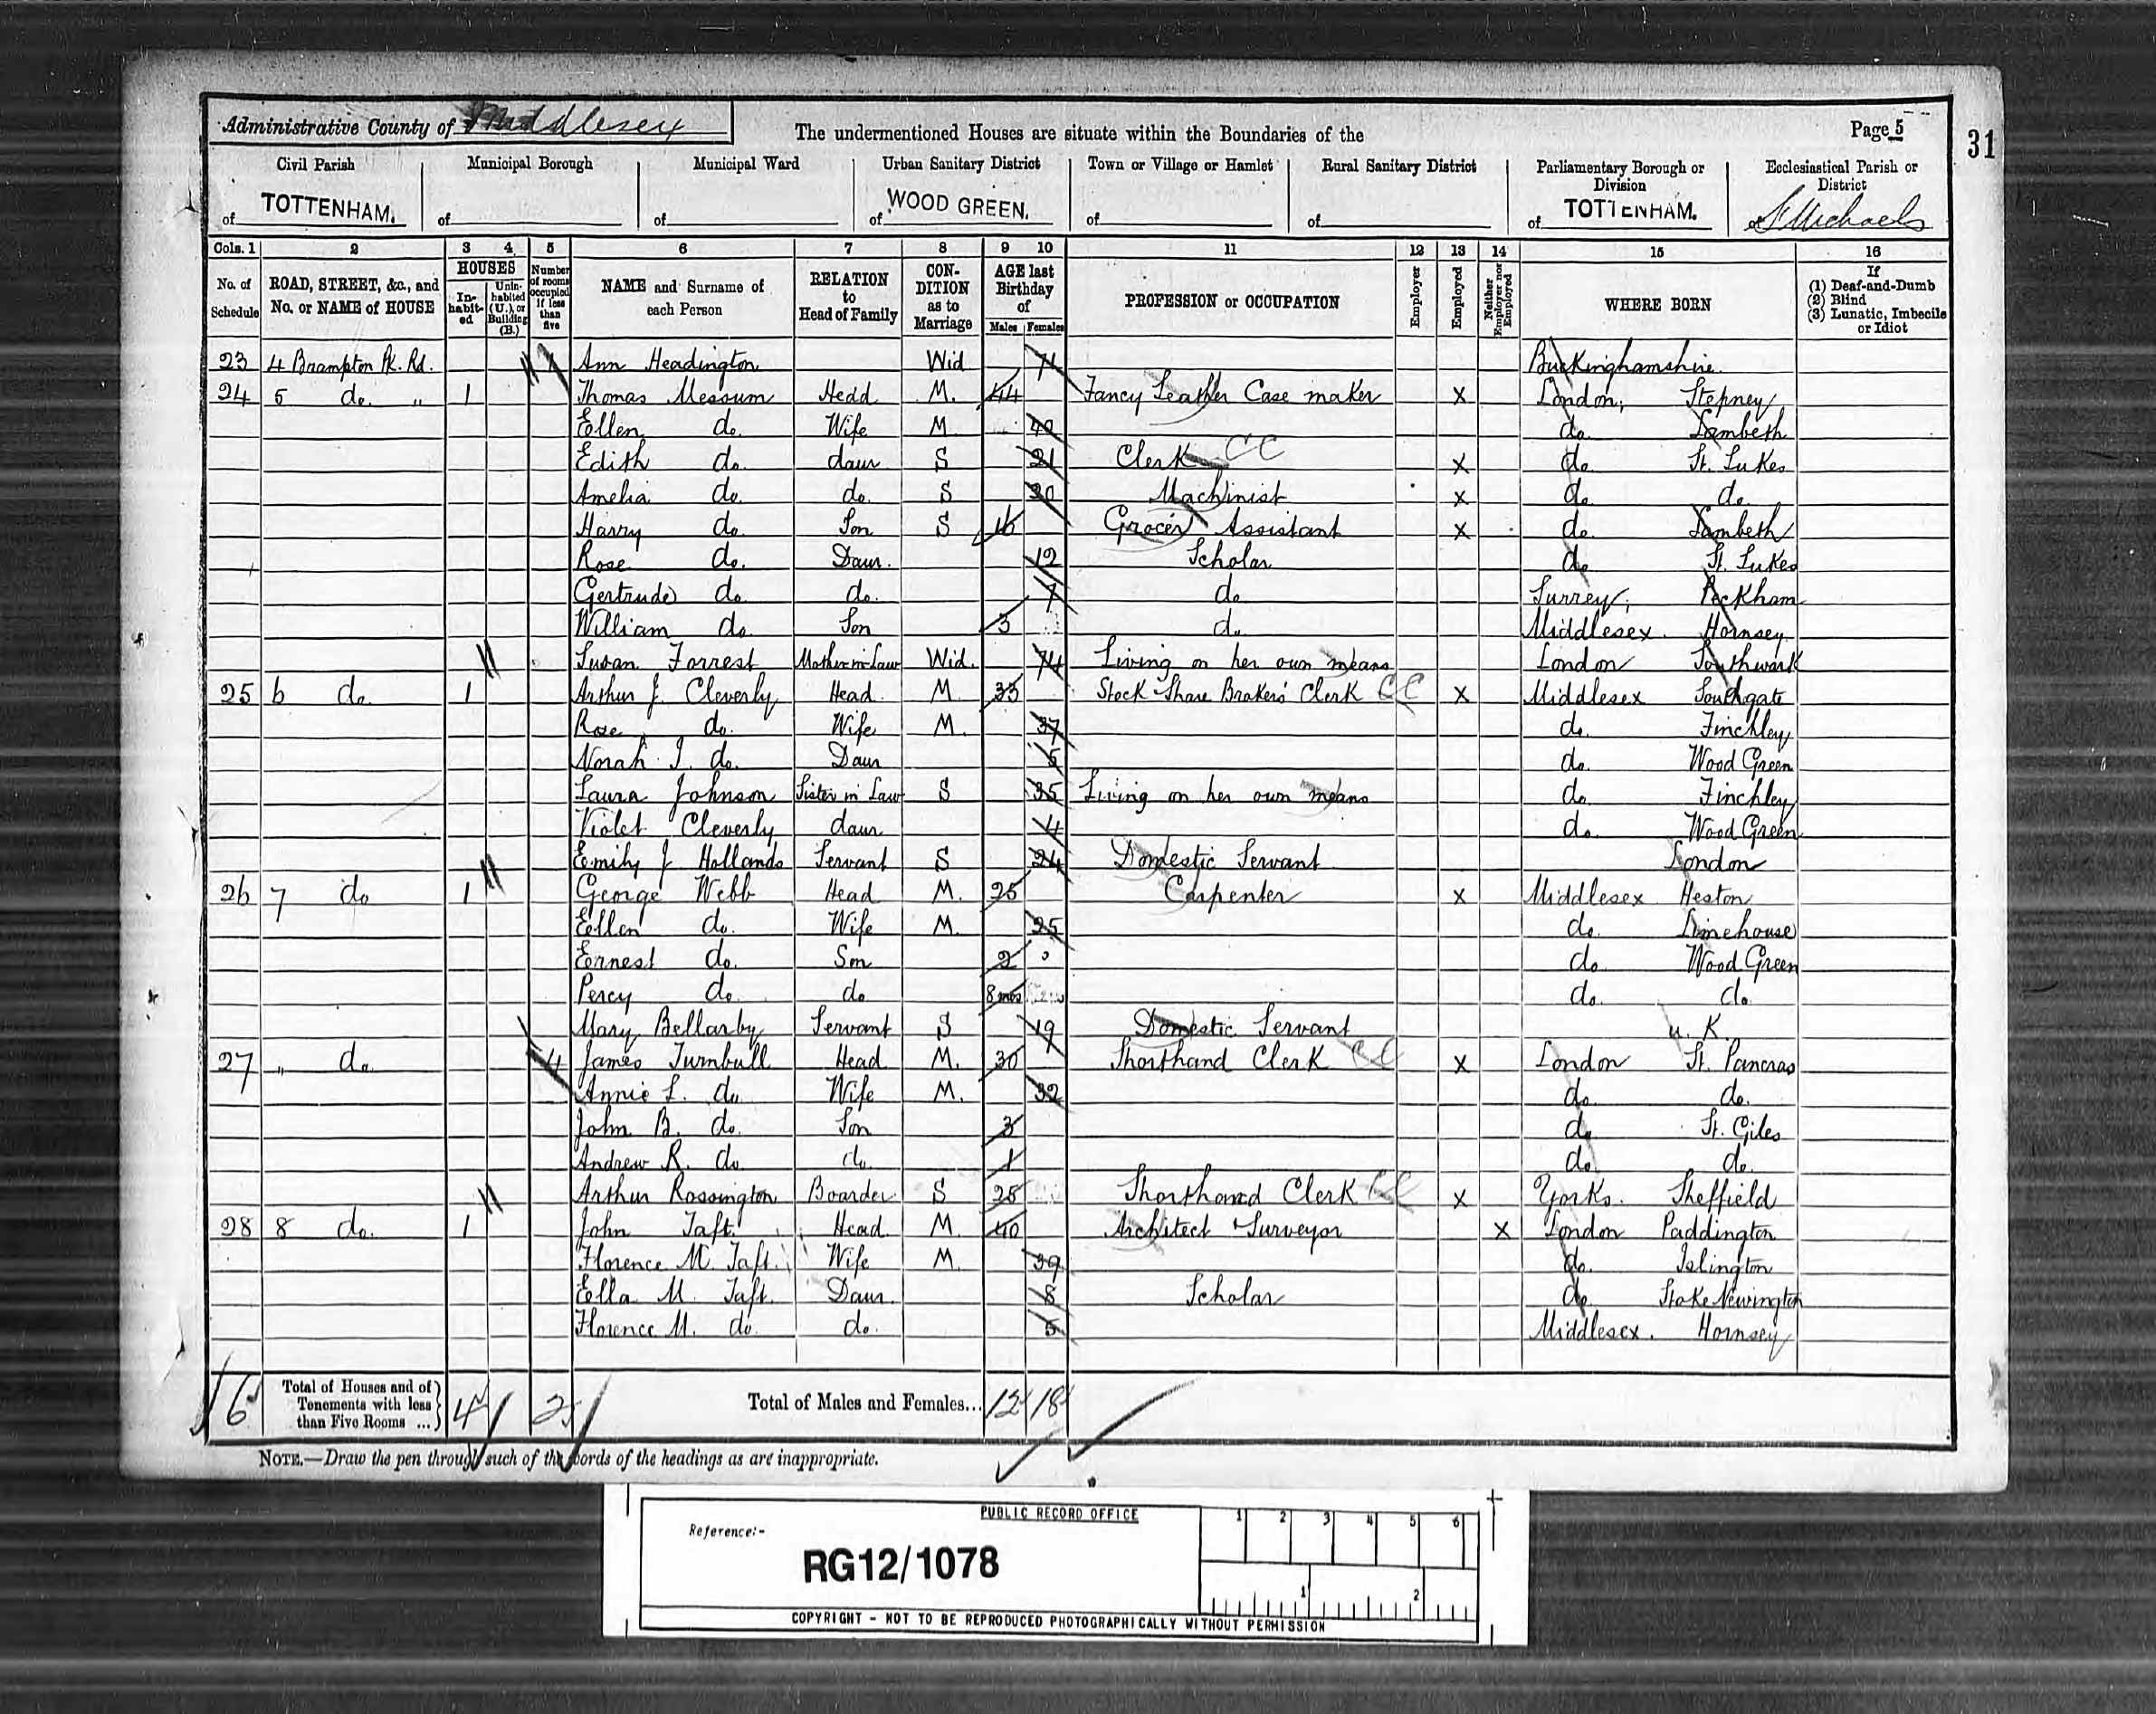 Administrative County of Middlesex
The undermentioned Houses are situate within the Boundaries of the
Page 5
31
Civil Parish
Municipal Borough
Municipal Ward
Urban Sanitary District
Town or Village or Hamlet
Rural Sanitary District
Parliamentary Borough or Division
Ecclesiastical Parish or District
of TOTTENHAM.
of
of
of WOOD GREEN.
of
of
of TOTTENHAM.
St Michaels
Cols. 1 2 3 4 5 6 7 8 9 10 11 12 13 14 15 16
No. of Schedule
ROAD, STREET, &c., and No. or NAME of HOUSE
HOUSES
In-habit-ed
Unin-habited (U.), or Building (B.)
Number of rooms occupied if less than five
NAME and Surname of each Person
RELATION to Head of Family
CON-DITION as to Marriage
AGE last Birthday of
Males Females
PROFESSION or OCCUPATION
Employer
Employed
Neither Employer nor Employed
WHERE BORN
If
(1) Deaf-and-Dumb
(2) Blind
(3) Lunatic, Imbecile or Idiot
23 4 Brampton Pk. Rd. 1 Ann Headington Wid 71 Buckinghamshire.
24 5 do. " 1 Thomas Messum Head M. 44 Fancy Leather Case maker X London, Stepney
Ellen do. Wife M 40 do. Lambeth
Edith do. daur S 21 Clerk CC X do. St. Lukes
Amelia do. do. S 20 Machinist X do. do.
Harry do. Son S 16 Grocer Assistant X do. Lambeth
Rose do. Daur. 12 Scholar do. St. Lukes
Gertrude do. do. 7 do. Surrey, Peckham
William do. Son 3 do. Middlesex. Hornsey
Susan Forrest Mother in Law Wid. 74 Living on her own means London Southwark
25 6 do. 1 Arthur J. Cleverly Head M. 33 Stock Share Brokers' Clerk CC X Middlesex Southgate
Rose do. Wife M. 37 do. Finchley
Norah I. do. Daur 5 do. Wood Green
Laura Johnson Sister in Law S 35 Living on her own means do. Finchley
Violet Cleverly daur 4 do. Wood Green
Emily J Hollands Servant S 24 Domestic Servant London
26 7 do 1 George Webb Head M. 25 Carpenter X Middlesex Heston
Ellen do. Wife M. 25 do. Limehouse
Ernest do. Son 2 do Wood Green
Percy do. do 8 mos do. do.
Mary Bellarby Servant S 19 Domestic Servant u. K.
27 " do. 4 James Turnbull Head M. 30 Shorthand Clerk CC X London St. Pancras
Annie L. do Wife M. 32 do. do.
John B. do. Son 3 do St. Giles
Andrew R. do do. 1 do. do.
Arthur Rossington Boarder S 25 Shorthand Clerk CC X Yorks. Sheffield
28 8 do. 1 John Taft. Head M. 40 Architect & Surveyor X London Paddington
Florence M. Taft. Wife M 39 do. Islington
Ella M. Taft. Daur. 8 Scholar do. Stoke Newington
Florence M. do. do. 5 Middlesex. Hornsey
6 Total of Houses and of Tenements with less than Five Rooms ... 4 2 Total of Males and Females... 12 18
NOTE.—Draw the pen through such of the words of the headings as are inappropriate.
PUBLIC RECORD OFFICE
1 2 3 4 5 6
Reference:-
RG12/1078
1 2
COPYRIGHT - NOT TO BE REPRODUCED PHOTOGRAPHICALLY WITHOUT PERMISSION